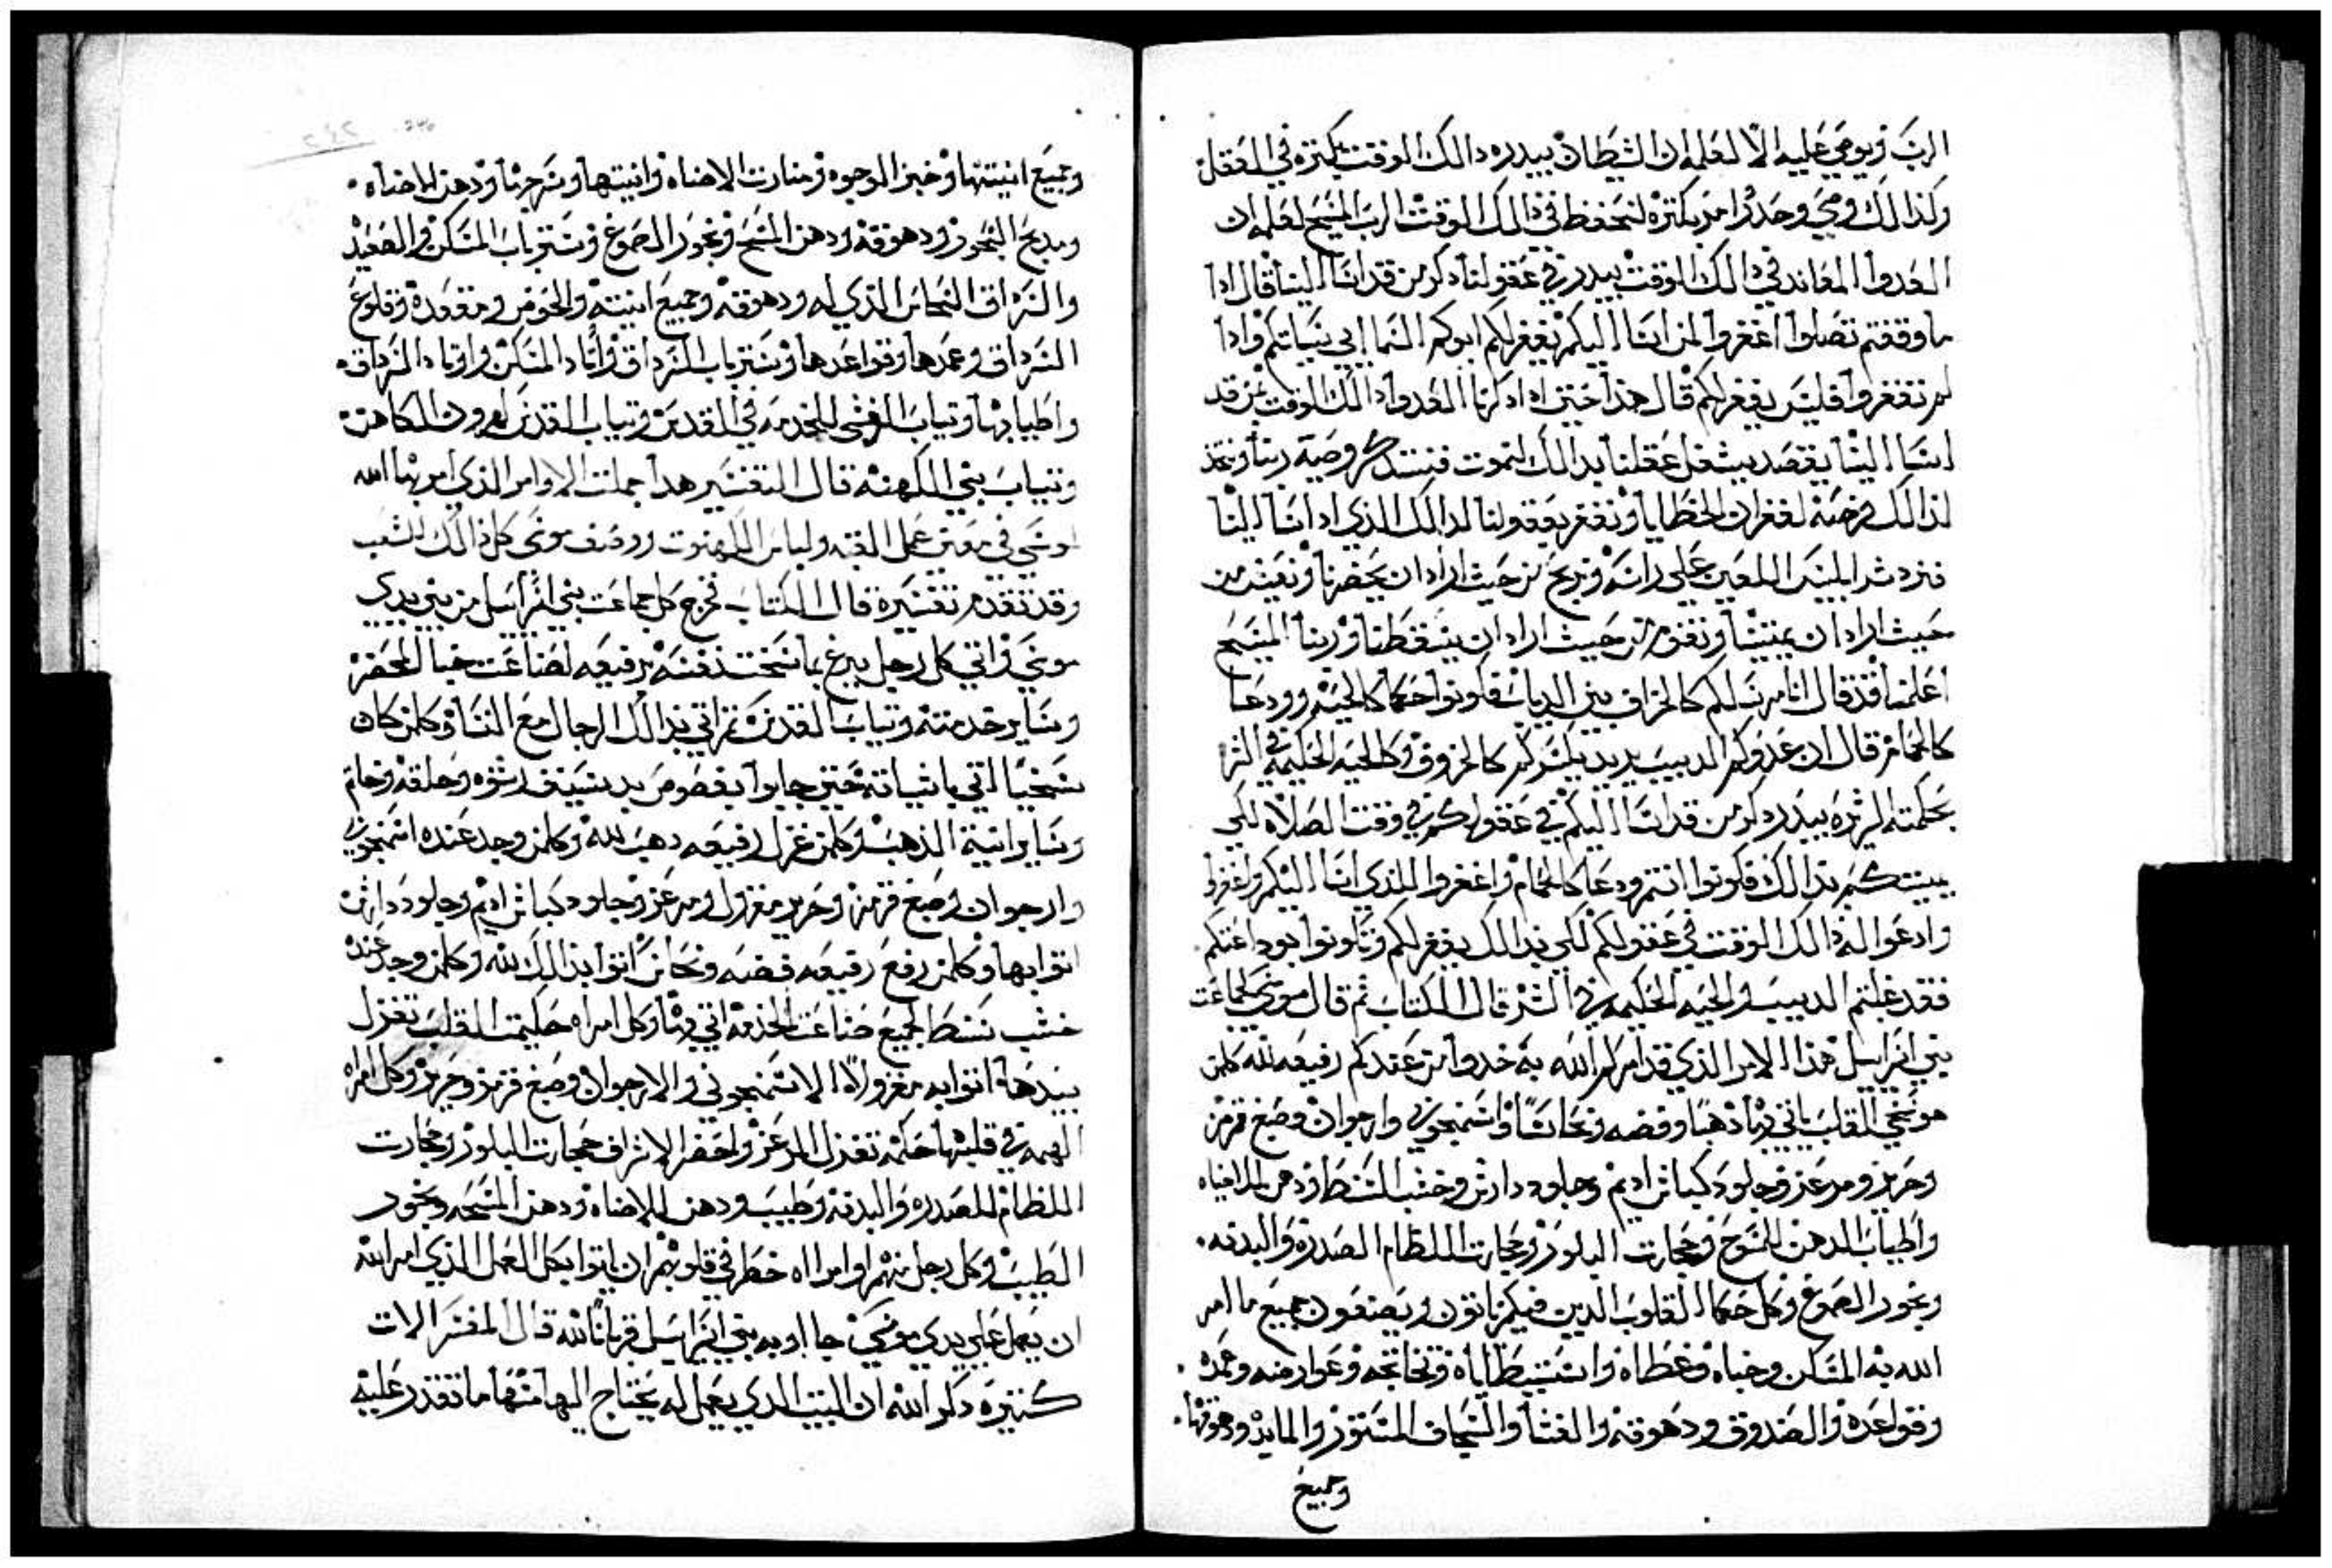 الرب ويومي عليه الا لعلمه ان الشيطان يبدره دالك الوقت بكتره في العقل
وكذالك ومي وحد وامر بكتره لنحفظ في ذالك الوقت الرب المسيح لعلمه ان
العدوا المعاند في دالك الوقت يبدر في عقولنا دكر من قد اسا الينا قال ادا
ما وقفتم تصلوا اغفروا لمن اسا اليكم يغفر لكم ابوكم السماايي سياتكم وادا
لم تغفروا فليس يغفر لكم قال هذا حتي ادا دكرنا العدوا دالك الوقت بمن قد
اسا الينا يقصد يشغل عقلنا بدالك لنموت فنستدكر وصية ربنا ونتخذ
لذالك فرصه لغفران الخطايا ونغفر بعقولنا لدالك الذي ادا اسا الينا
فنرد شر ابليس اللعين علي راسه ونربح من حيث اراد ان يخسرنا ونعيش من
حيث اراد ان يميتنا ونقوم من حيث اراد ان يسقطنا وربنا المسيح
اعلمنا فقد قال انا مرسلكم كالخراف بين الدياب فكونوا حكما كالحيه وودعا
كالحمام قال ان عدوكم الديب يريد يكسركم كالخروف وكالحيه الحكيمه في الشر
بحكمته الشريره يبدر دكر من قد اسا اليكم في عقولكم في وقت الصلاه لكي
يميتكم بدالك فكونوا انتم ودعا كالحمام واغفروا للذي اسا اليكم واغفروا
وادعوا له ذالك الوقت في عقولكم لكي بدالك يغفر لكم وتكونوا بوداعتكم
فقد غلبتم الديب والحيه الحكيمه في الشر قال الكتاب ثم قال موسي لجماعت
بني اسراسل هذا الامر الذي قد امركم الله به خدوا من عندكم رفيعه لله كلمن
هو سخي القلب ياتي بها دهبا وفضه ونحاسا واسمنجوني وارجوان وصبغ قرمز
وحرير ومرعز وجلود كباش اديم وجلود دارش وخشب السنط ودهن للاضياه
واطياب لدهن المسوح وحجارت البلور وحجارت للنظام الصدره والبدنه
وبخور الصموغ وكل حكما القلوب الدين فيكم ياتون ويصنعون جميع ما امر
الله به المسكن وخباه وغطاه واستيطاله وتخاتجه وعوارضه وعمده
وقواعده والصدوق ودهوقه والغشا والسجاف المستور والمايده ودهوقها
وجميع
وجميع انيتها وخبز الوجوه ومنارت الاضاه وانيتها وسرجها ودهن الاضاه
ومدبح البخور ودهوقه ودهن المسح وبخور الصموغ وستر باب المسكن والصعيد
والسرداق النحاس الذي له ودهوقه وجميع انيته والحوض ومقعده وقلوع
السرداق وعمدها وقواعدها وستر باب السرداق واوتاد المسكن واوتاد السرداق
واطيابها وتياب الغشي للخدمه في القدس وتياب القدس لهرون الكاهن
وتياب بني الكهنه قال التفسير هدا جملت الاوامر الذي امر بها الله
لموسي في معني عمل القبه ولباس الكهنوت ووصف موسي كل ذالك للشعب
وقد تقدم تفسيره قال الكتاب فخرج كل جماعت بني اسراسل من بين يدي
موسي واتي كل رجل يبرع بما سخت نفسه برفيعه لصناعت خبا المحضر
وساير خدمته وتياب القدس تم اتي بدالك الرجال مع النسا وكلمن كان
سخيا اتي باشياته حتي جابوا بفصوص شنوف وحلقه وخاتم
وساير انية الذهب وكلمن غزل رفيعه دهب لله وكلمن وجد عنده اسمنجوني
وارجوان وصبغ قرمز وحرير مغزول ومرعز وجلود كباش اديم وجلود دارش
اتوا بها وكلمن رفع رفيعه فضه ونحاس اتوا بذالك لله وكلمن وجد عنده
خشب سنط لجميع صناعت الخدمه اتي بها وكل امراه حكيمت القلب تغزل
بيدها اتوا به مغزولا الاسمنجوني والارجوان وصبغ قرمز وحرير وكل امراه
الهمه في قلبها حكمه تغزل المرعز واحضر الاشراف حجارت البلور وحجارت
النظام للصدره والبدنه وطيب ودهن للاضاه ودهن المسحه وبخور
الطيب وكل رجل منهم او امراه خطر في قلوبهم ان ياتوا بكل العمل الذي امر الله
ان يعمل علي يدي موسي جااو به بني اسراسل قربانا لله قال المفسر الات
كثيره دكر الله ان البيت الدي يعمل له يحتاج اليها منها ما تقدر عليه